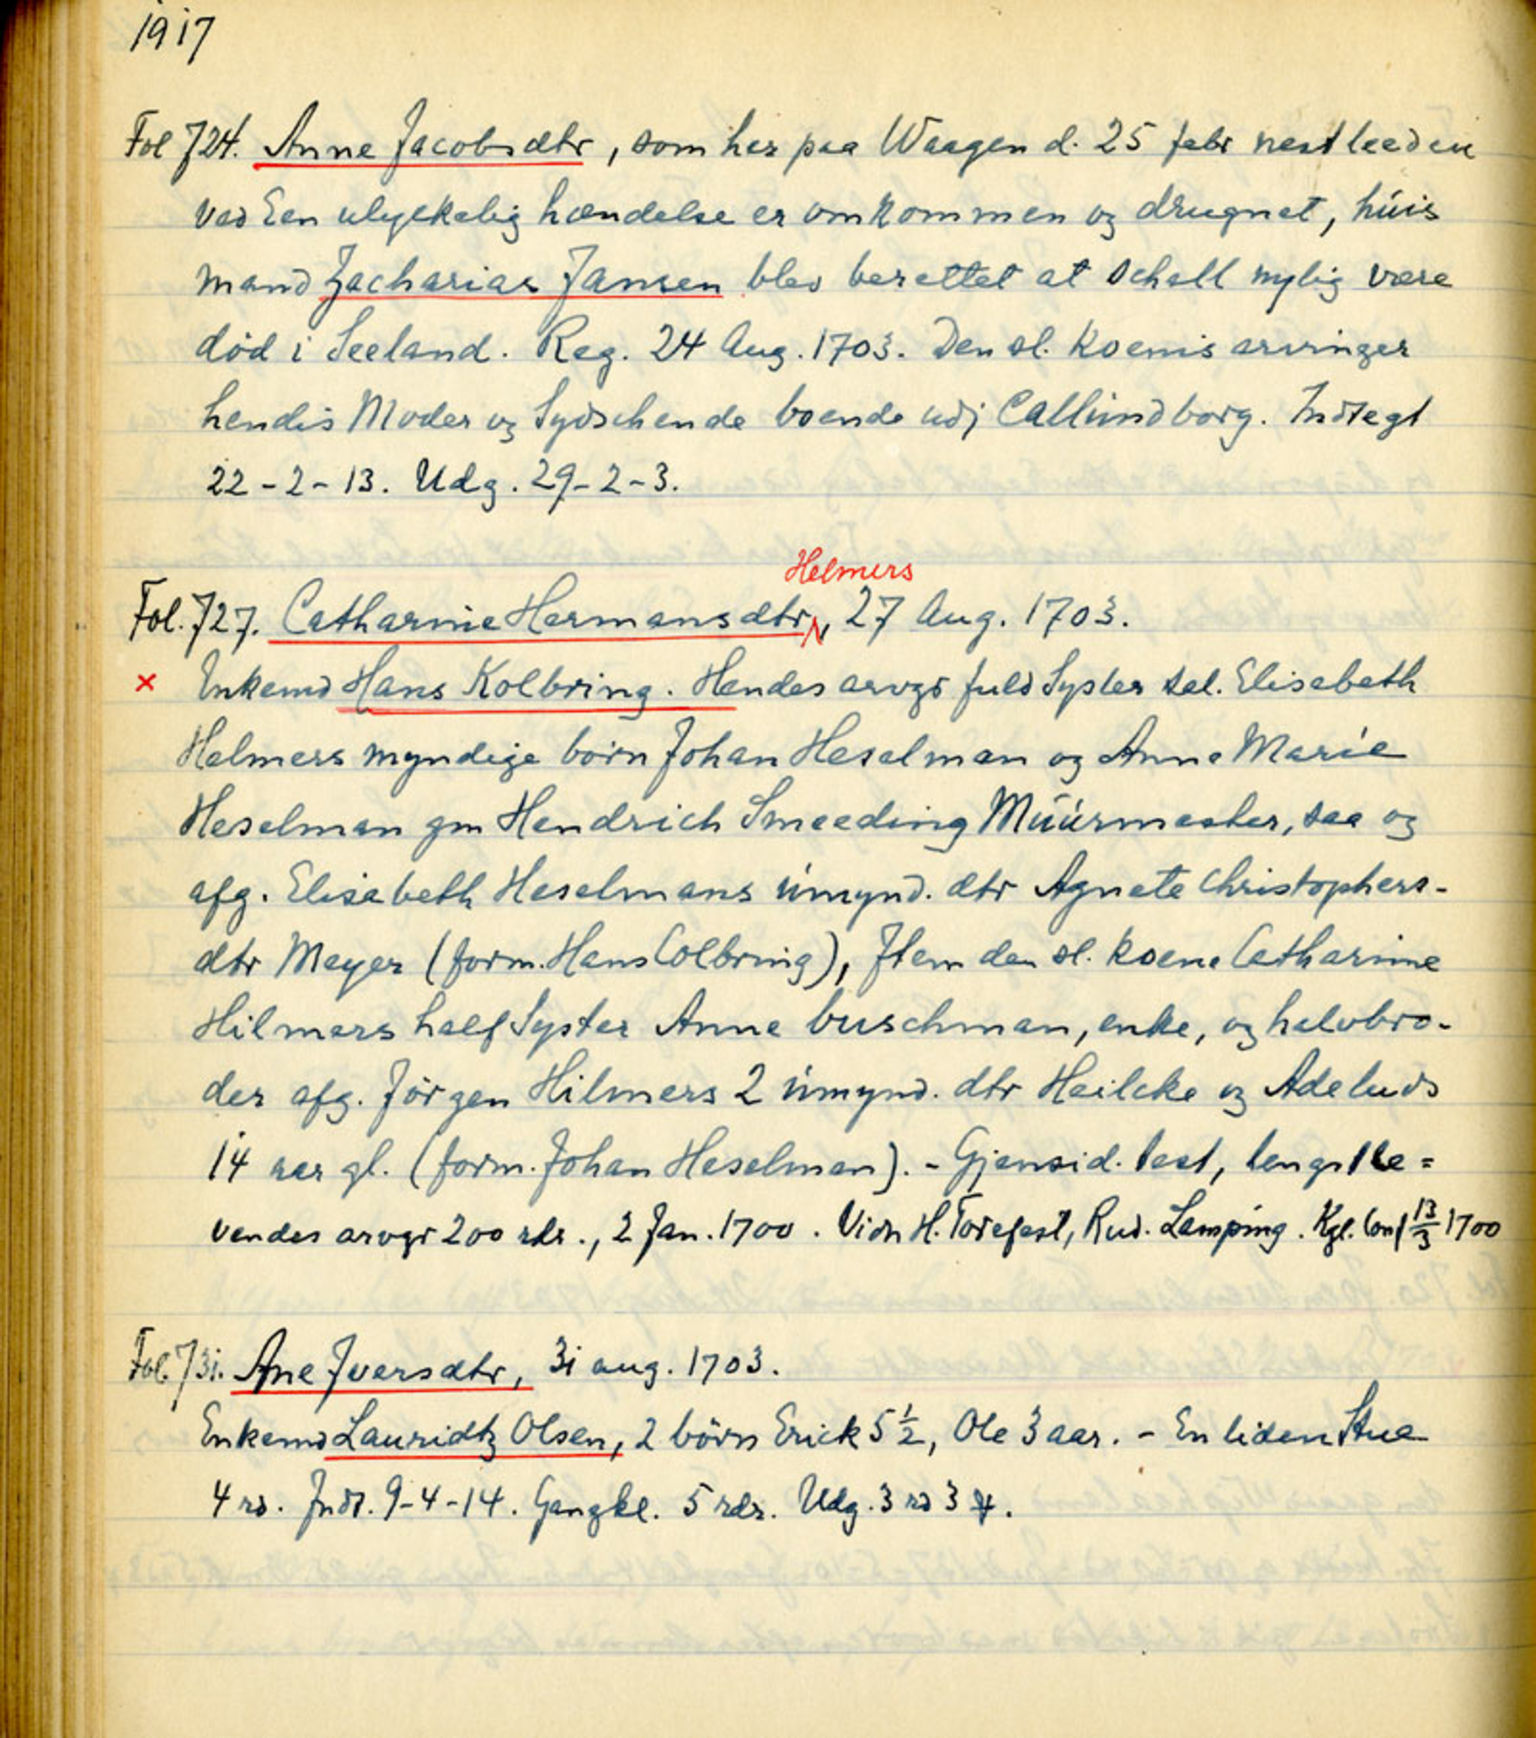 1917
Fol 724. Anne Jacobsdtr, som her paa Waagen d. 25 febr nestleeden
ved Een ulyckelig hændelse er omkommen og drugnet, húis
mand Zacharias Jansen blev berettet at schall nylig være
død i Seeland. Reg. 24 Aug. 1703. Den sl. Koenis arvinger
hendis Moder og Sydschende boende udj Callúndborg. Indtegt
22-2-13. Udg. 29-2-3.
Helmers
Fol. 727. Catharine Hermansdtr, 27 Aug. 1703.
x Enkemd Hans Kolbring. Hendes arvgr fuld Syster sal. Elisabeth
Helmers myndige börn Johan Heselman og Anne Marie
Heselman gm Hendrich Smeeding Múúrmester, saa og
afg. Elisabeth Heselmans úmynd. dtr Agnete Christophers-
dtr Meyer (form. Hans Colbring), Item den sl. koene Catharine
Hilmers half Syster Anne buschman, enke, og halvbro-
der afg. Jörgen Hilmers 2 úmynd. dtr Heilcke og Adeluds
14 aar gl. (form. Johan Heselman). - Gjensid. test, lengstle=
vendes arvgr 200 rdr., 2 Jan. 1700. Vidn H. Torefest, Rud. Lamping. Kgl. Conf 13/3 1700
Fol. 731. Ane Iversdtr, 31 aug. 1703.
Enkemd Lauridtz Olsen, 2 börn Erick 5 1/2, Ole 3 aar. - En liden Stue
4 rd. Indt. 9-4-14. Gangkl. 5 rdr. Udg. 3 rd 3